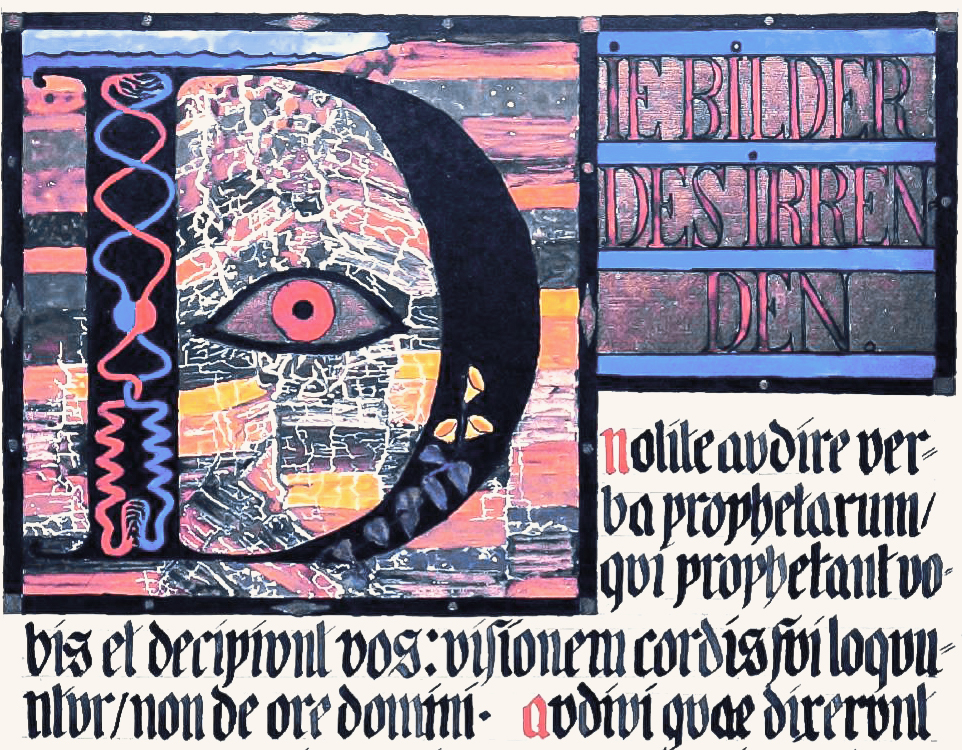 DIE BILDER
DES IRREN
DEN.
nolite avdire ver=
ba prophetarum/
qvi prophetant vo=
bis et decipivnt vos: visionem cordis svi loqvu=
ntvr/non de ore domini· avdivi qvae dixervnt